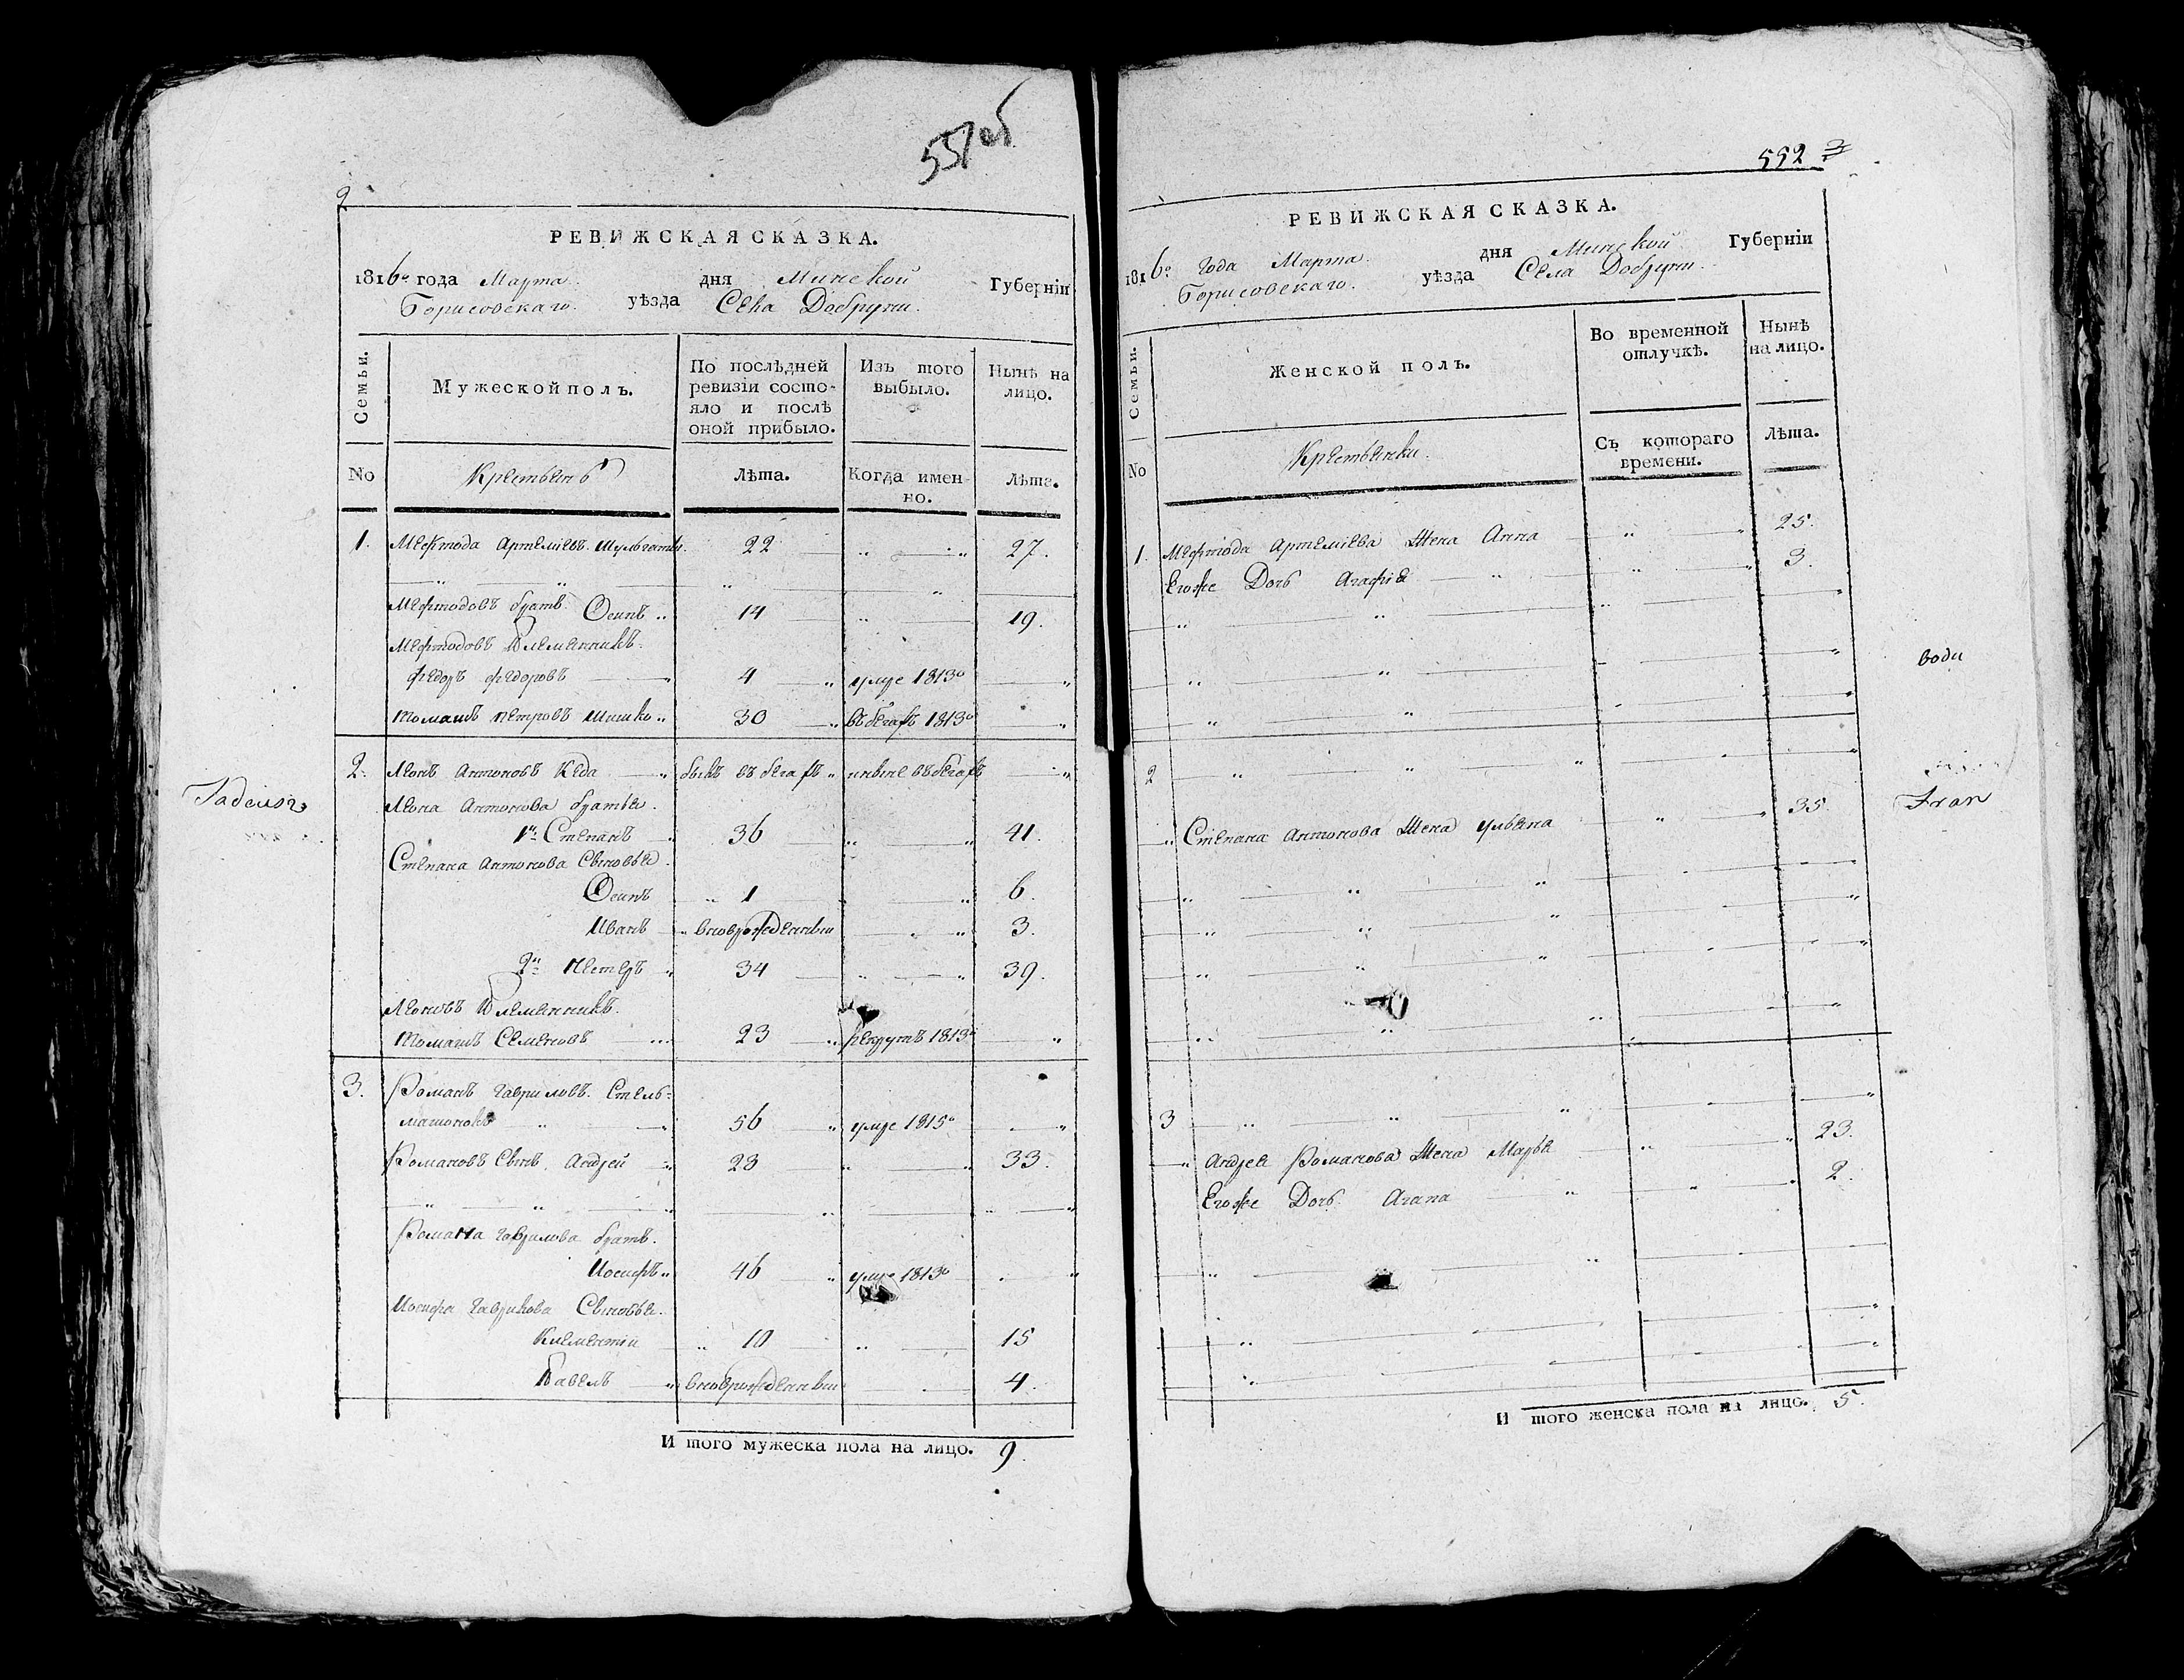 551 об
2
РЕВИЖСКАЯ СКАЗКА.
1816го года Марта дня Минской Губерніи
Борисовскаго уѣзда Села Добруни.
Семьи.
Мужеской полъ.
По послѣдней ревизіи состо-
яло и послѣ
оной прибыло.
Изъ того
выбыло.
Нынѣ на
лицо.
No
Крестьянъ
Лѣта.
Когда имен-
но.
Лѣта.
1. Мефтода Артемѣевъ 22 27.
Мефтодовъ братъ Осипъ 14 19.
Мефтодовъ племянникъ
Федоръ Федоровъ 4 умре 1813о
Томашъ Петровъ Шишко 30 въ бѣгахъ 1813о
2. Леонъ Антоновъ Кеда былъ въ бегахъ и нынѣ въ бегахъ
Леона Антонова братья.
1й Степанъ 36 41.
Степана Антонова Сыновья.
Осипъ 1 6.
Иванъ вноврожденный 3.
2й Петеръ 34 39.
Леоновъ племянникъ.
Томашъ Семеновъ 23 рекрутъ 1813о
3. Романъ Гавриловъ. Стель-
56 умре 1815о
Романовъ Сынъ Андрей 23 33.
Романа Гаврилова братъ.
Иосифъ 46 умре 1813о
Иосифа Гаврилова Сыновья.
Климентій 10 15
Павелъ вноврожденный 4.
И того мужеска пола на лицо. 9.
Tadeusz
552
3
РЕВИЖСКАЯ СКАЗКА.
1816го года Марта дня Минской Губерніи
Борисовскаго. уѣзда Села Добруни.
Семьи.
Женской полъ.
Во временной
отлучкѣ.
Нынѣ
на лицо.
No
Крестьянки.
Съ котораго
времени.
Лѣта.
1. Мефтода Артемѣева Жена Анна 25.
Егоже Дочь Агафія 3.
2
Степана Антонова Жена Ульяна 35.
3
Андрея Романова Жена Марья 23.
Егоже Дочь Агапа 2.
И того женска пола на лицо. 5.
Fran